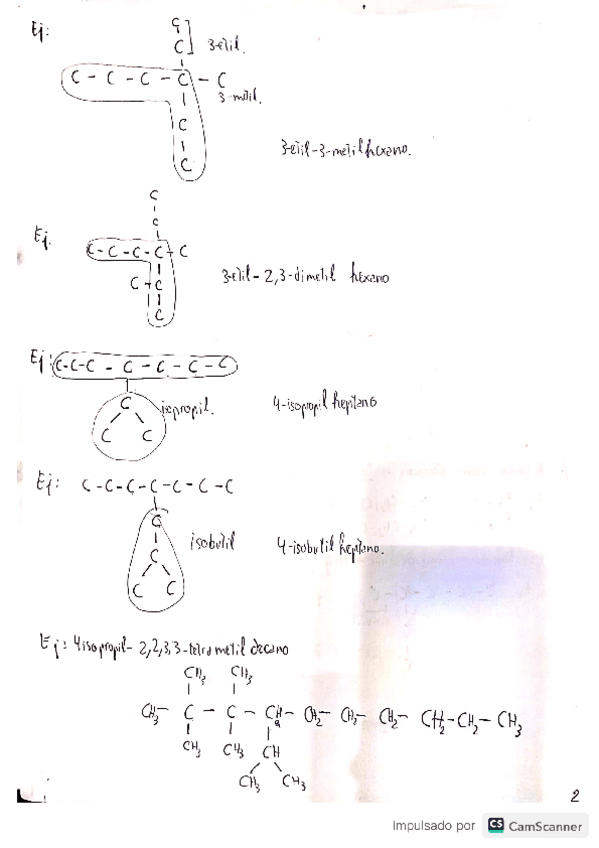 Ej:
C
C
3-etil.
C - C - C - C - C
3-metil.
C
C
3-etil-3-metil hexano.
C
C
Ej.
C-C-C-C-C
C-C
C
3-etil-2,3-dimetil hexano
Ej: C-C-C-C-C-C-C
C
isopropil.
4-isopropil heptano
C C
Ej: C-C-C-C-C-C-C
C
isobutil
4-isobutil heptano.
C
C C
Ej: 4isopropil-2,2,3,3-tetrametil decano
CH3 CH3
CH3- C - C - CH- CH2- CH2- CH2- CH2-CH2-CH3
4
CH3 CH3 CH
CH3 CH3
2
Impulsado por CS CamScanner